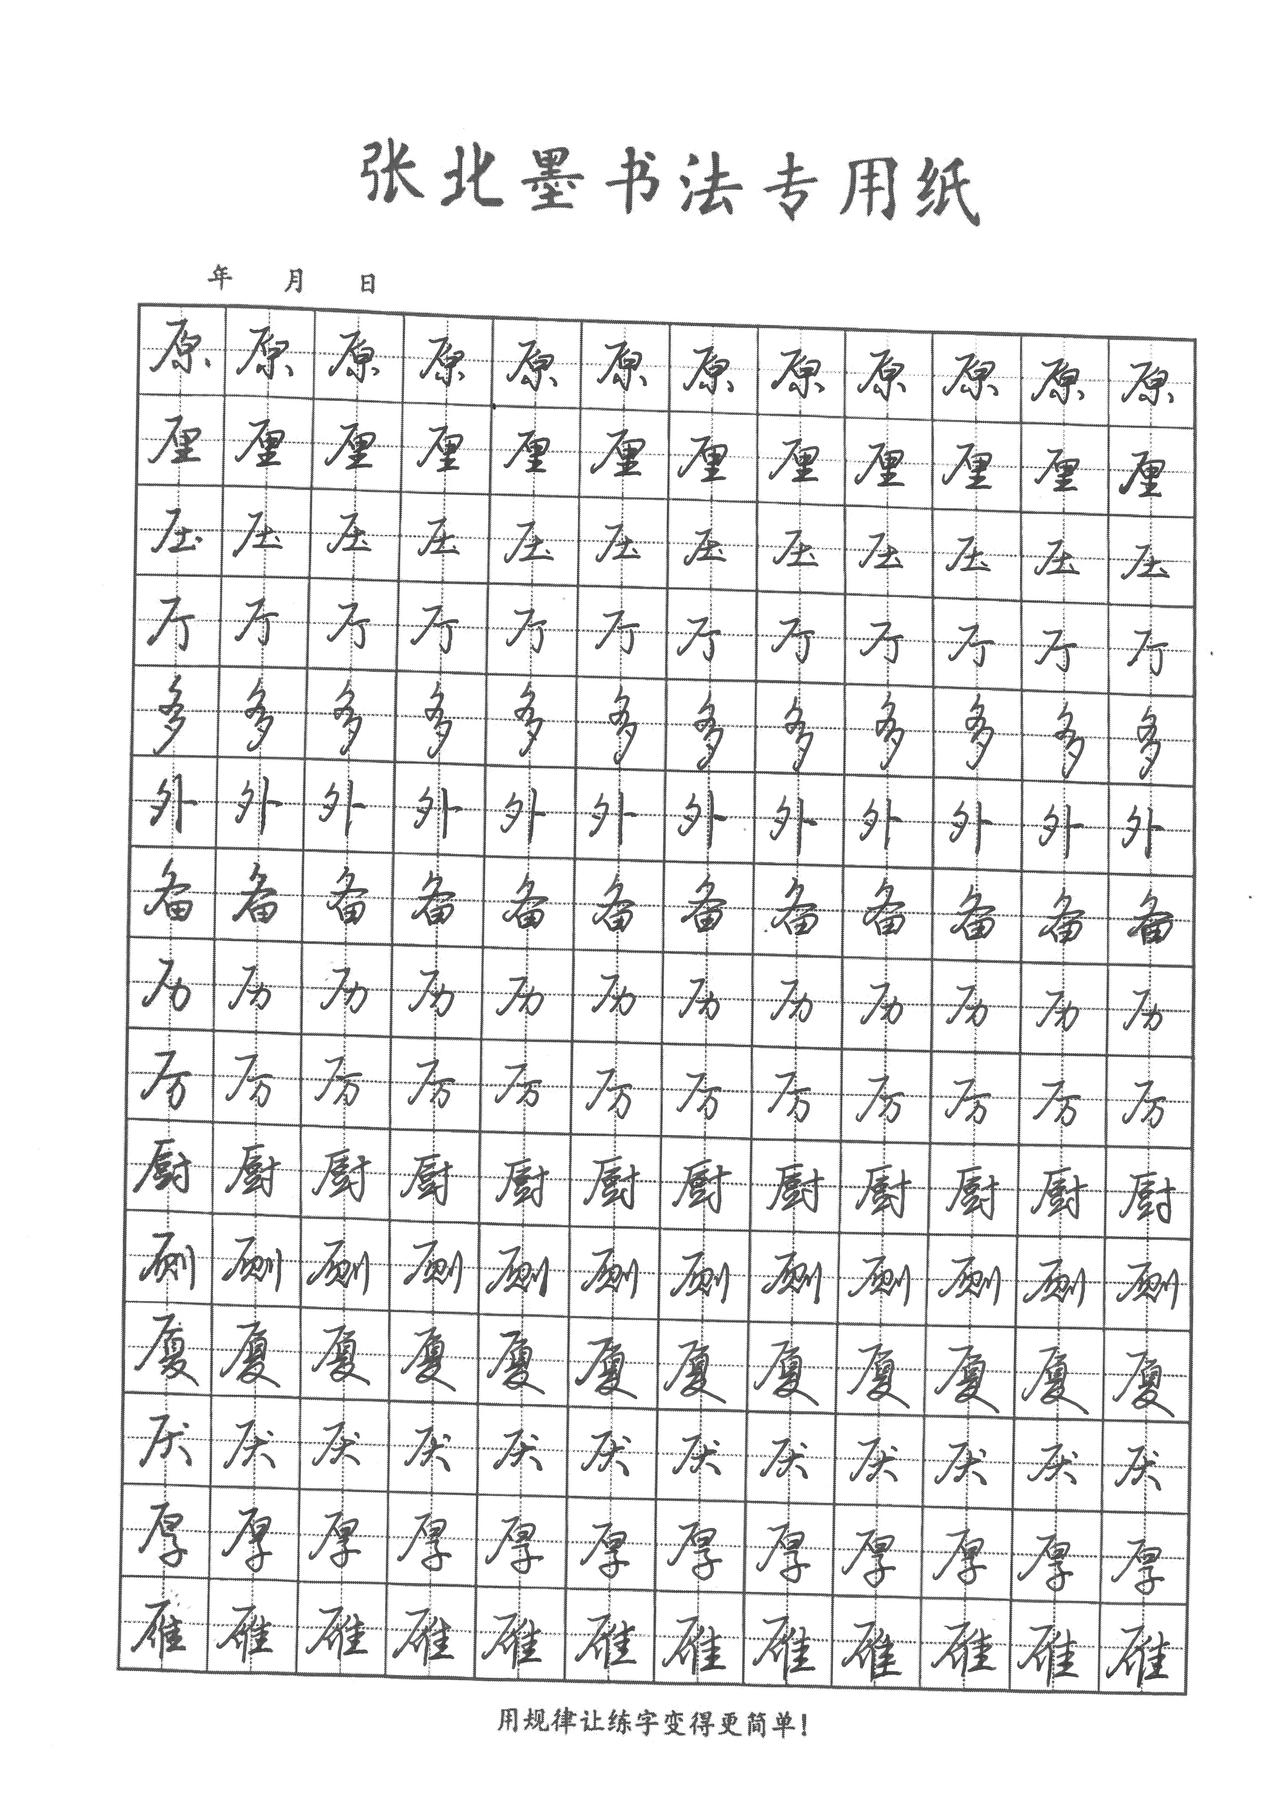 张北墨书法专用纸
年 月 日
原原原原原原原原原原原原
厘厘厘厘厘厘厘厘厘厘厘厘
压压压压压压压压压压压压
厅厅厅厅厅厅厅厅厅厅厅厅
多多多多多多多多多多多多
外外外外外外外外外外外外
备备备备备备备备备备备备
历历历历历历历历历历历历
厉厉厉厉厉厉厉厉厉厉厉厉
厨厨厨厨厨厨厨厨厨厨厨厨
厕厕厕厕厕厕厕厕厕厕厕厕
厦厦厦厦厦厦厦厦厦厦厦厦
厌厌厌厌厌厌厌厌厌厌厌厌
厚厚厚厚厚厚厚厚厚厚厚厚
雁雁雁雁雁雁雁雁雁雁雁雁
用规律让练字变得更简单！